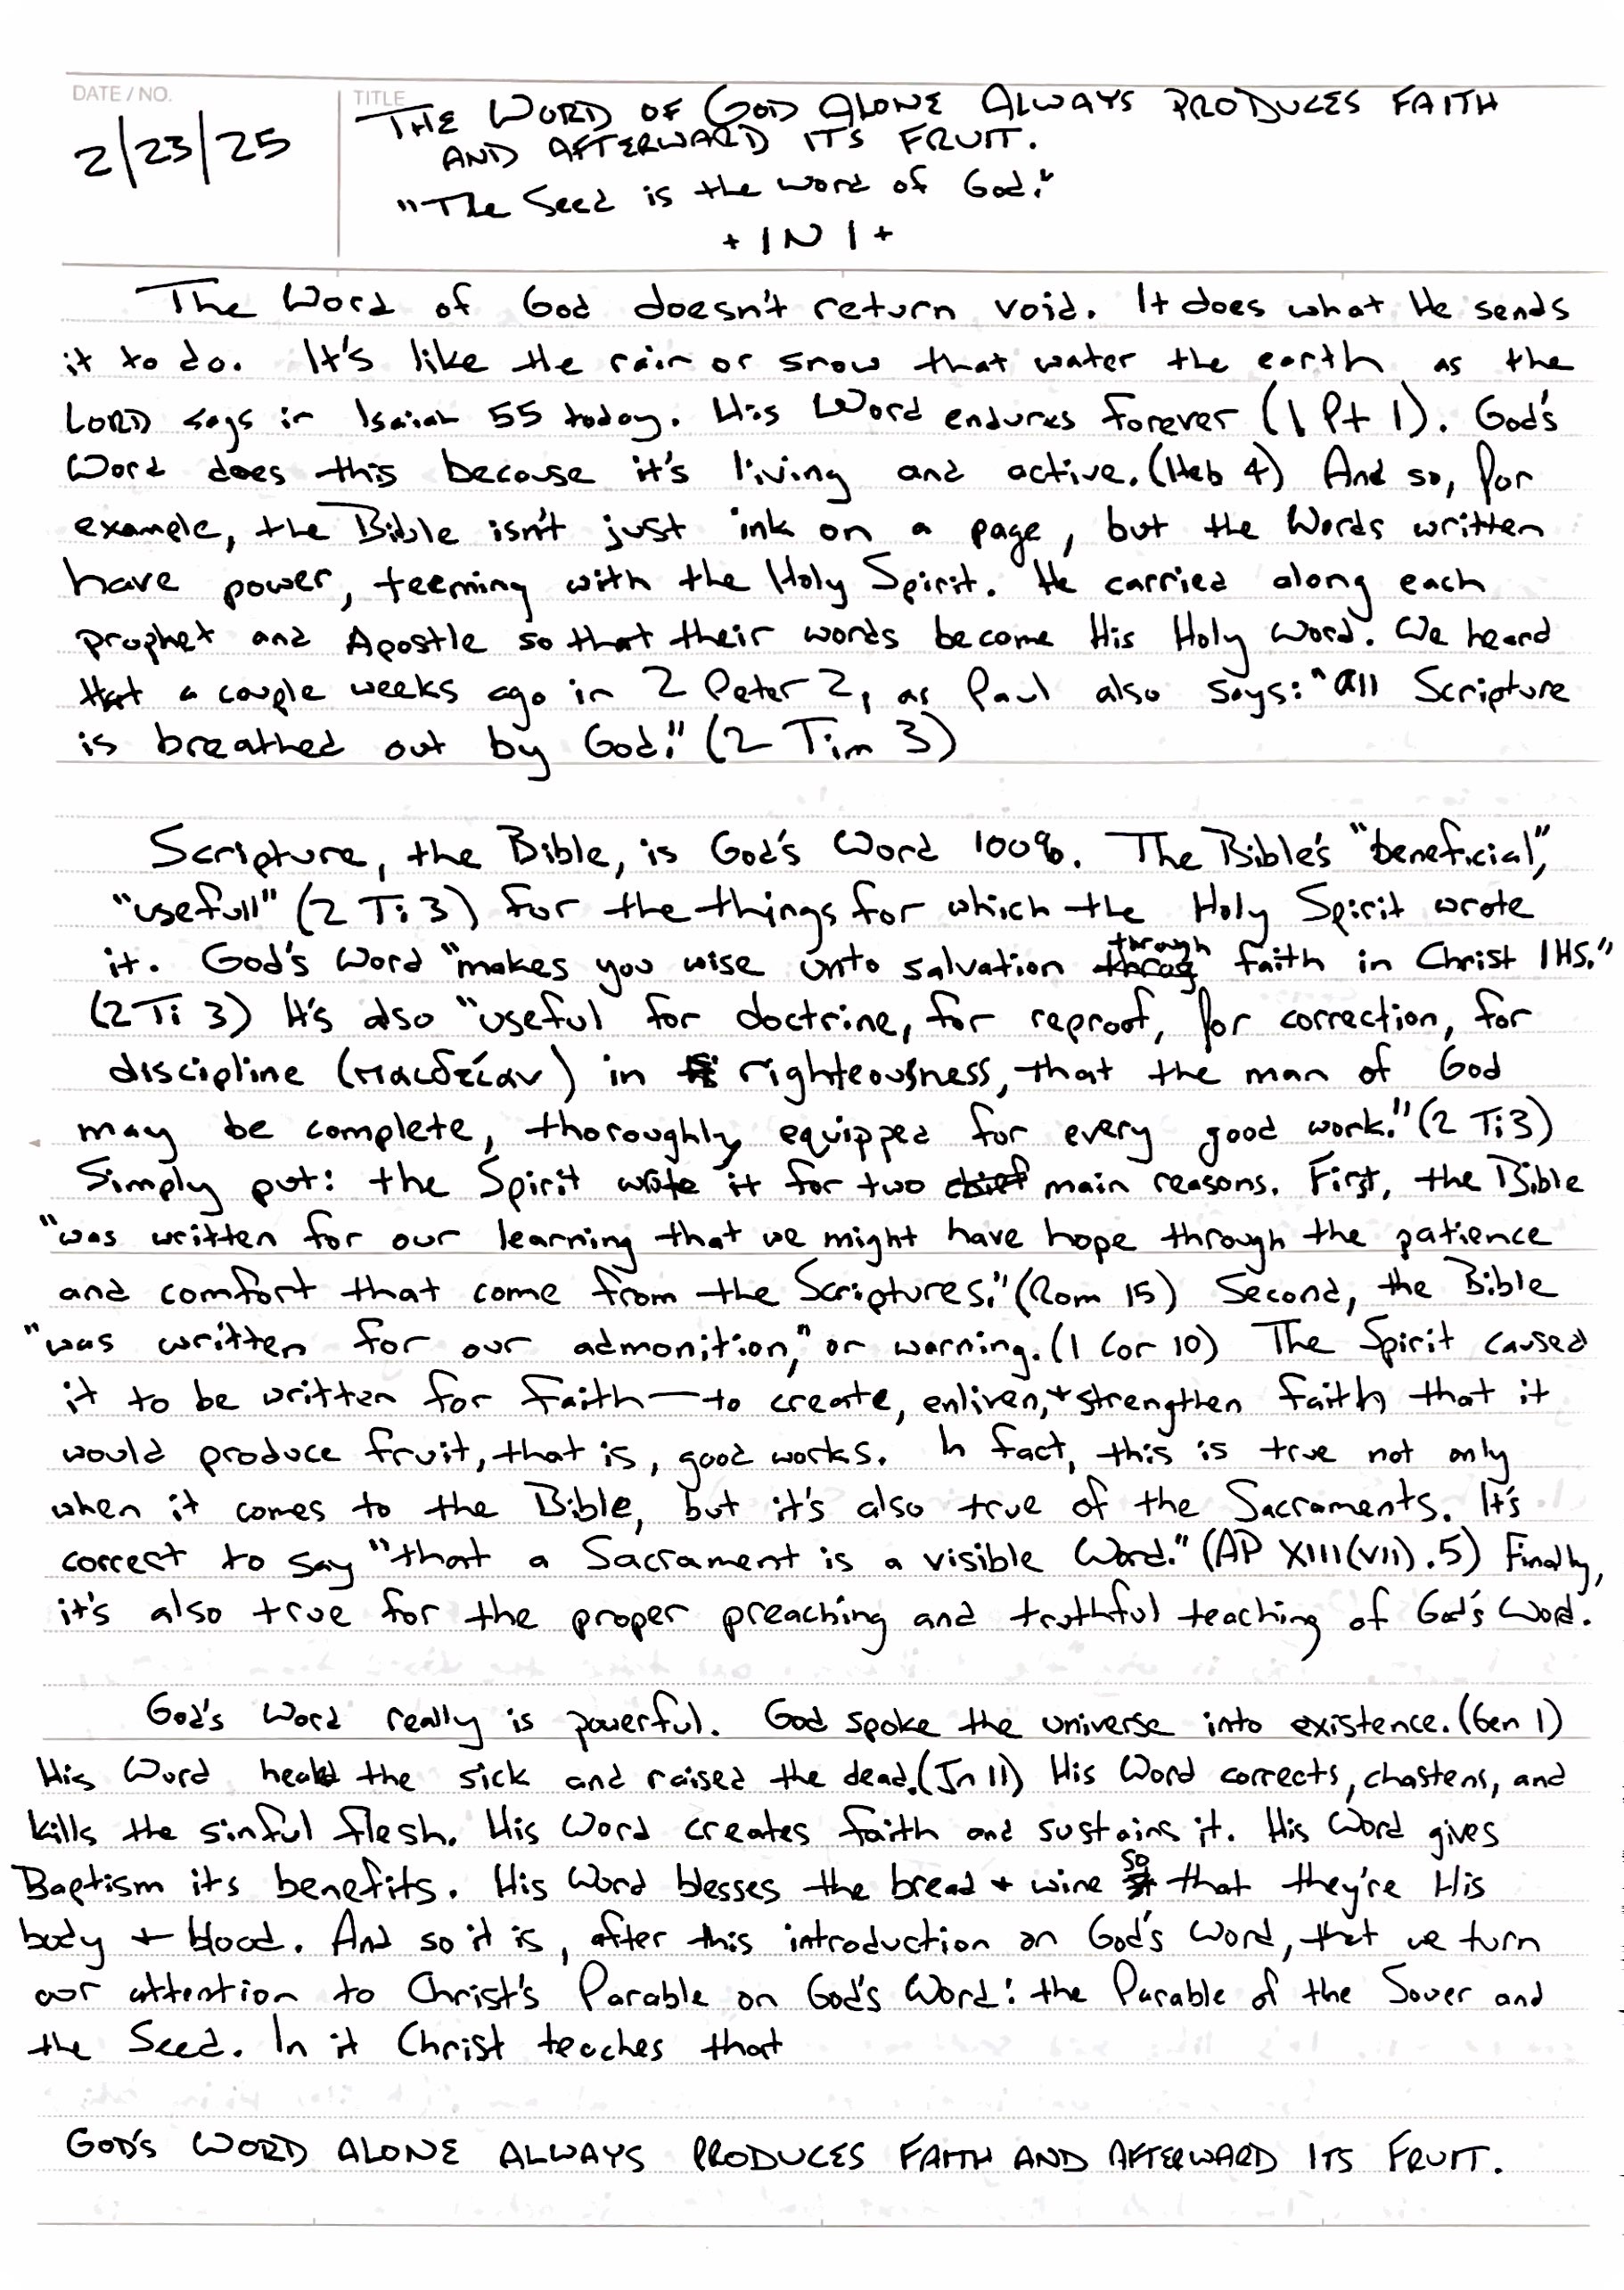 DATE / NO.
2/23/25
TITLE
THE WORD OF GOD ALONE ALWAYS PRODUCES FAITH
AND AFTERWARD ITS FRUIT.
"The Seed is the word of God."
+ I N I +
The Word of God doesn't return void. It does what He sends
it to do. It's like the rain or snow that water the earth as the
LORD says in Isaiah 55 today. His Word endures forever (1 Pt 1). God's
Word does this because it's living and active. (Heb 4) And so, for
example, the Bible isn't just ink on a page, but the Words written
have power, teeming with the Holy Spirit. He carried along each
prophet and Apostle so that their words become His Holy Word. We heard
that a couple weeks ago in 2 Peter 2, as Paul also says: "all Scripture
is breathed out by God." (2 Tim 3)
Scripture, the Bible, is God's Word 100%. The Bible's "beneficial",
"usefull" (2 Ti 3) for the things for which the Holy Spirit wrote
it. God's Word "makes you wise unto salvation through faith in Christ IHS."
(2 Ti 3) It's also "useful for doctrine, for reproof, for correction, for
discipline (παιδείαν) in righteousness, that the man of God
may be complete, thoroughly equipped for every good work." (2 Ti 3)
Simply put: the Spirit wrote it for two main reasons. First, the Bible
"was written for our learning that we might have hope through the patience
and comfort that come from the Scriptures." (Rom 15) Second, the Bible
"was written for our admonition," or warning. (1 Cor 10) The Spirit caused
it to be written for faith—to create, enliven, + strengthen faith that it
would produce fruit, that is, good works. In fact, this is true not only
when it comes to the Bible, but it's also true of the Sacraments. It's
correct to say "that a Sacrament is a visible Word." (AP XIII (VII) .5) Finally,
it's also true for the proper preaching and truthful teaching of God's Word.
God's Word really is powerful. God spoke the universe into existence. (Gen 1)
His Word healed the sick and raised the dead. (Jn 11) His Word corrects, chastens, and
kills the sinful flesh. His Word creates faith and sustains it. His Word gives
Baptism its benefits. His Word blesses the bread + wine so that they're His
body + blood. And so it is, after this introduction on God's Word, that we turn
our attention to Christ's Parable on God's Word: the Parable of the Sower and
the Seed. In it Christ teaches that
GOD'S WORD ALONE ALWAYS PRODUCES FAITH AND AFTERWARD ITS FRUIT.